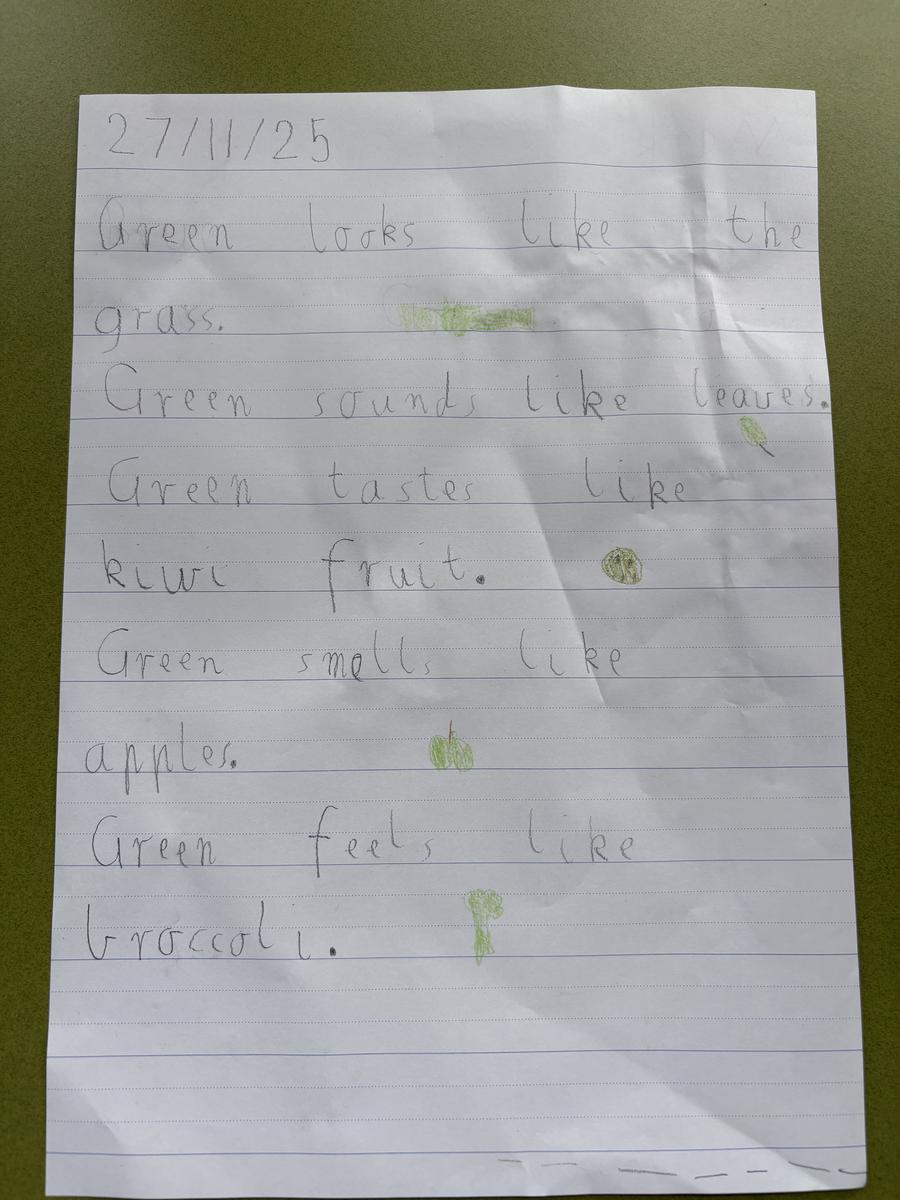 27/11/25
Green looks like the
grass.
Green sounds like leaves.
Green tastes like
kiwi fruit.
Green smells like
apples.
Green feels like
broccoli.